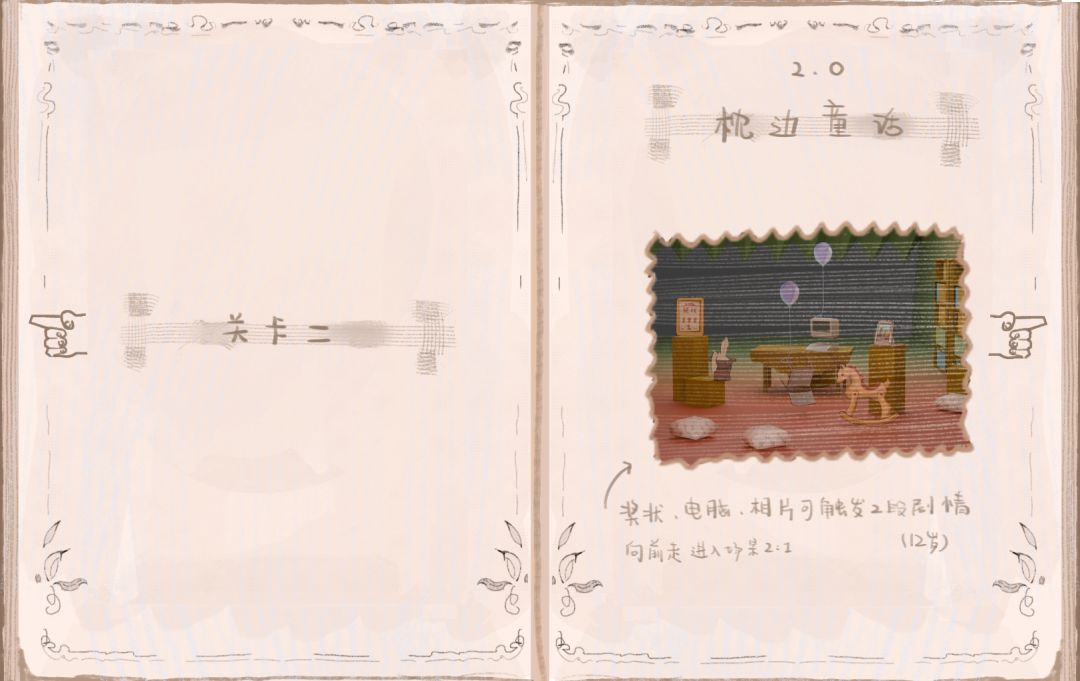 关卡二
2.0
枕边童话
奖状、电脑、相片可触发2段剧情
(12岁)
向前走进入场景2:1